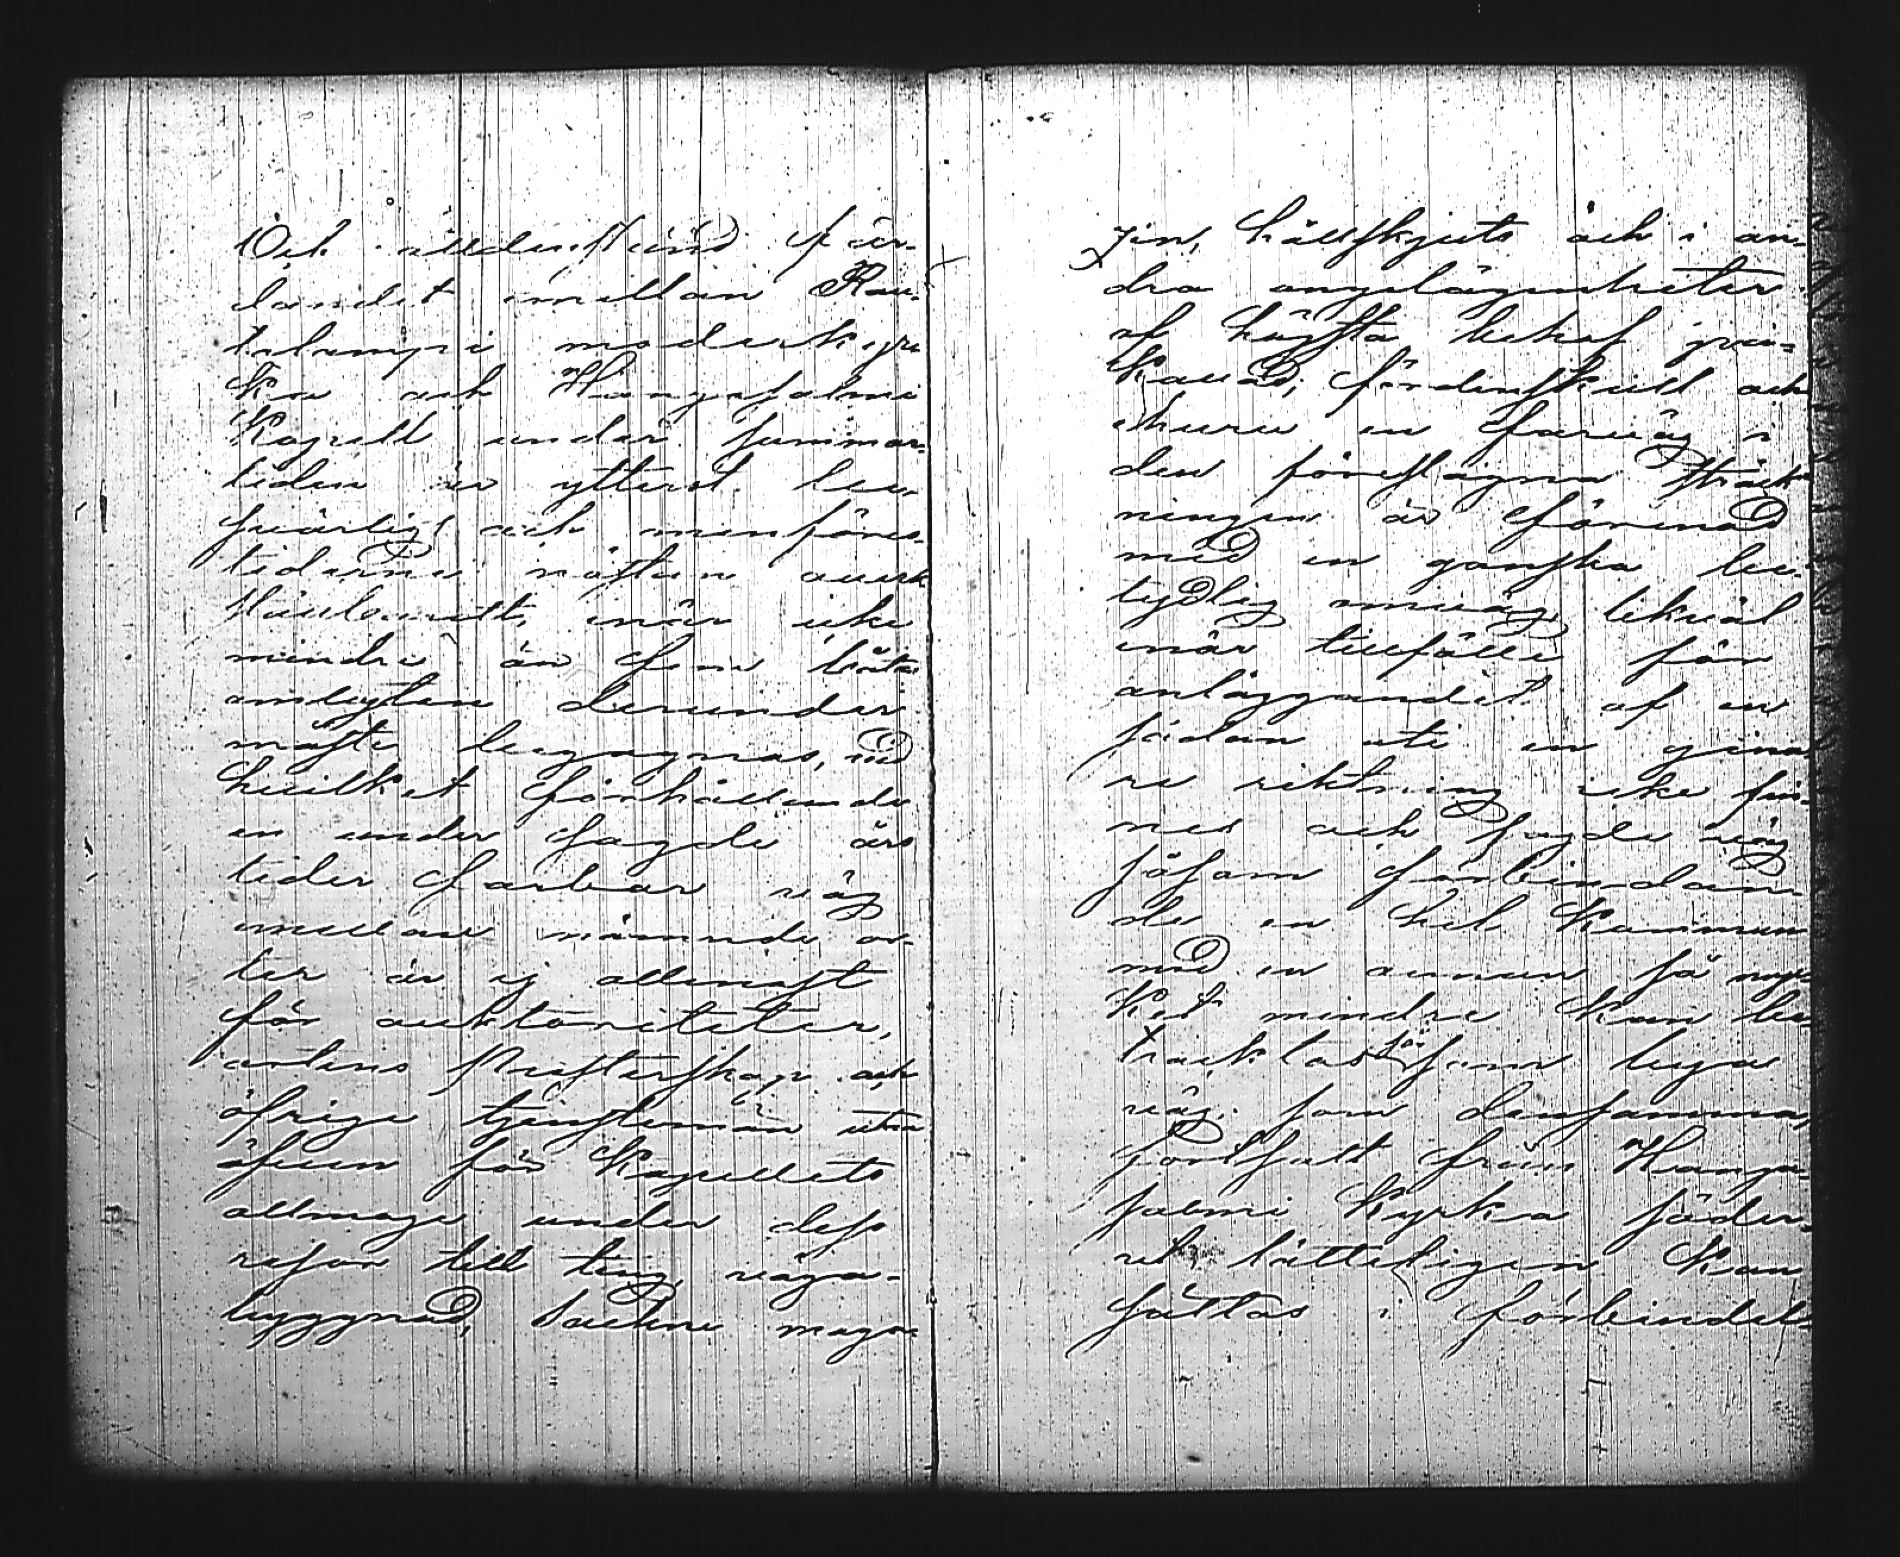 Och alldenstund far-
landet emillan Rau-
talampi moderkyr-
ka och Hangasalmi
Kapell under sommar-
tiden är ytterst be-
svärligt och menföres-
tiderne nästan
när icke
mindre än fem båt-
ombyten derunder
måste begagnas, vid
hvilket förhållande
en under sagde års
tider farbar väg
emellan nämnde or-
ter är ej allenast
för auktoriteter,
ortens Presterskap och
öfrige tjenstemän utan
äfven för Kapellets
allmoge under dess
resor till ting, väga-
byggnad, Sockne maga-
zin, hållskjuts och i an-
dra angelägenheter
af högsta behof på-
kallad, fördenskull och
ehuru en farväg i
den föreslagna sträck-
ningen är förenad
med en ganska be-
tydlig omväg, likväl
när tillfälle för
anläggandet af en
sådan uti en gina-
re riktning icke fin-
nes och sagde väg
såsom förbindan-
de en hel Kommun
med en annan så myc-
ket mindre kan be-
traktas för som bya
väg, som densamma,
fortsatt från Hanga-
salmi Kyrka söder-
ut lätteligen kan
sättas i förbindel-